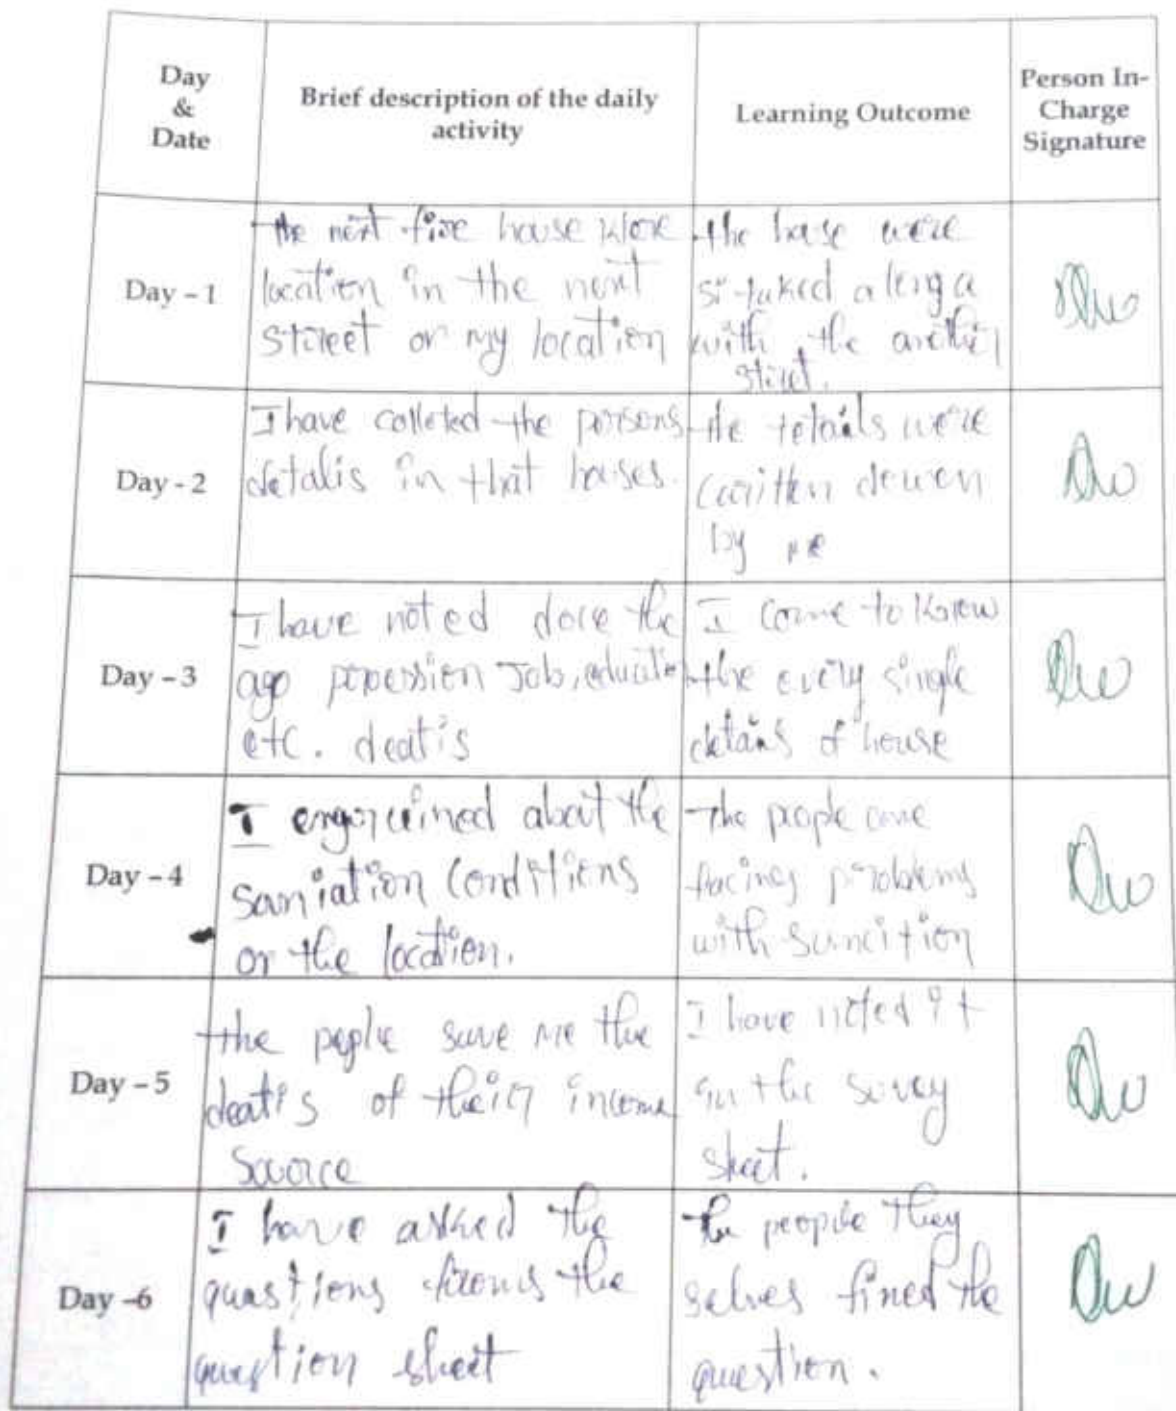 Day
&
Date
Brief description of the daily
activity
Learning Outcome
Person In-
Charge
Signature
Day - 1
the next five house were
location in the next
street or my location
the house were
situked along a
with the another
street.
Day - 2
I have colleted the persons
detalis in that houses.
the tetails were
written dowen
by me
Day - 3
I have noted done the
age popession Job, eduatio
etc. deatis
I come to know
the every single
details of house
Day - 4
I about the
saniation conditions
or the location.
The people are
facing problems
with
Day - 5
the people me the
deatis of their income
source
I have noted it
in the survey
sheet.
Day -6
I have asked the
quastions the
question sheet
the people they
selves fined the
question.